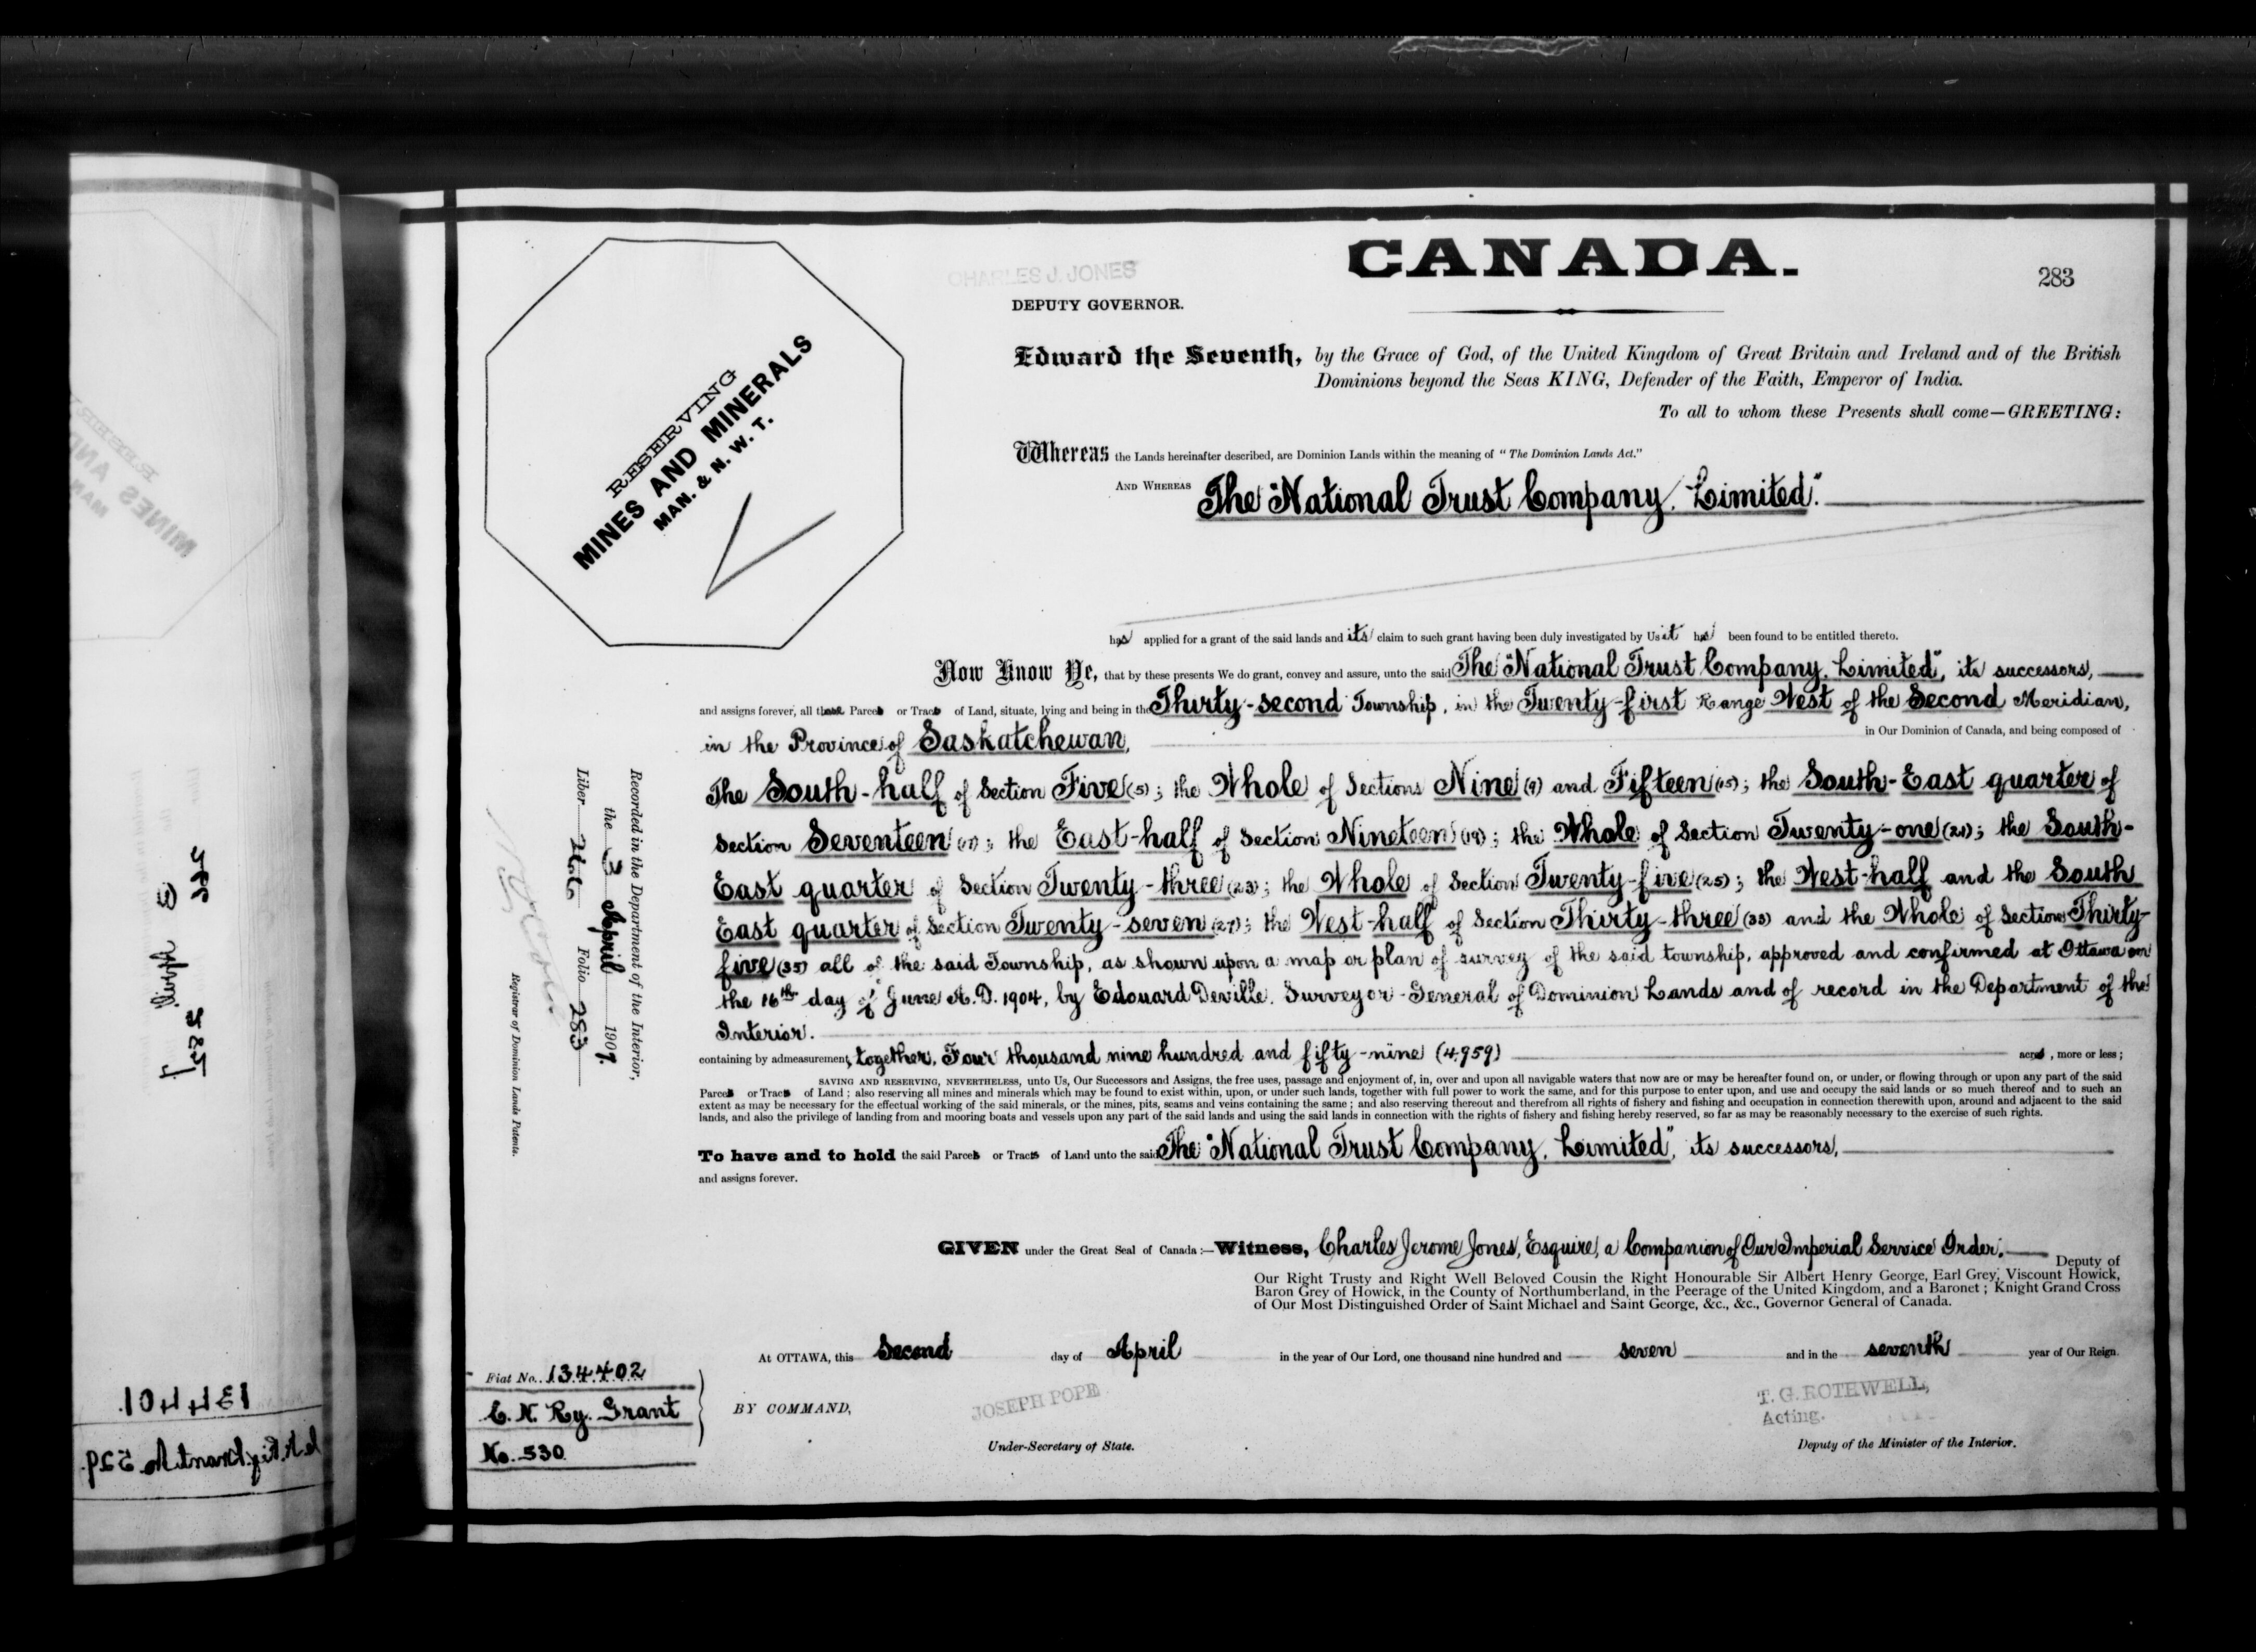 CANADA.
283
CHARLES J. JONES
DEPUTY GOVERNOR.
Edward the Seventh, by the Grace of God, of the United Kingdom of Great Britain and Ireland and of the British
Dominions beyond the Seas KING, Defender of the Faith, Emperor of India.
To all to whom these Presents shall come—GREETING:
RESERVING
MINES AND MINERALS
MAN. & N. W. T.
Whereas the Lands hereinafter described, are Dominion Lands within the meaning of "The Dominion Lands Act."
AND WHEREAS The "National Trust Company, Limited."
has applied for a grant of the said lands and its claim to such grant having been duly investigated by Us it has been found to be entitled thereto.
Now Know Ye, that by these presents We do grant, convey and assure, unto the said The "National Trust Company, Limited", its successors,
and assigns forever, all those Parcels or Tracts of Land, situate, lying and being in the Thirty-second Township, in the Twenty-first Range West of the Second Meridian,
in the Province of Saskatchewan,
in Our Dominion of Canada, and being composed of
The South-half of Section Five (5); the Whole of Sections Nine (9) and Fifteen (15); the South-East quarter of
Section Seventeen (17); the East-half of Section Nineteen (19); the Whole of Section Twenty-one (21); the South-
East quarter of Section Twenty-three (23); the Whole of Section Twenty-five (25); the West-half and the South
East quarter of Section Twenty-seven (27); the West-half of Section Thirty-three (33) and the Whole of Section Thirty-
five (35) all of the said Township, as shown upon a map or plan of survey of the said township, approved and confirmed at Ottawa on
the 16th day of June A.D. 1904, by Edouard Deville, Surveyor-General of Dominion Lands and of record in the Department of the
Interior.
containing by admeasurement, together, Four thousand nine hundred and fifty-nine (4,959) acres, more or less;
SAVING AND RESERVING, NEVERTHELESS, unto Us, Our Successors and Assigns, the free uses, passage and enjoyment of, in, over and upon all navigable waters that now are or may be hereafter found on, or under, or flowing through or upon any part of the said
Parcels or Tracts of Land; also reserving all mines and minerals which may be found to exist within, upon, or under such lands, together with full power to work the same, and for this purpose to enter upon, and use and occupy the said lands or so much thereof and to such an
extent as may be necessary for the effectual working of the said minerals, or the mines, pits, seams and veins containing the same; and also reserving thereout and therefrom all rights of fishery and fishing and occupation in connection therewith upon, around and adjacent to the said
lands, and also the privilege of landing from and mooring boats and vessels upon any part of the said lands and using the said lands in connection with the rights of fishery and fishing hereby reserved, so far as may be reasonably necessary to the exercise of such rights.
To have and to hold the said Parcels or Tracts of Land unto the said The "National Trust Company, Limited", its successors,
and assigns forever.
Recorded in the Department of the Interior,
the 3 April 1907.
Liber 266 Folio 283
Registrar of Dominion Lands Patents.
GIVEN under the Great Seal of Canada:—Witness, Charles Jerome Jones, Esquire, a Companion of Our Imperial Service Order.
Deputy of
Our Right Trusty and Right Well Beloved Cousin the Right Honourable Sir Albert Henry George, Earl Grey, Viscount Howick,
Baron Grey of Howick, in the County of Northumberland, in the Peerage of the United Kingdom, and a Baronet; Knight Grand Cross
of Our Most Distinguished Order of Saint Michael and Saint George, &c., &c., Governor General of Canada.
At OTTAWA, this Second day of April in the year of Our Lord, one thousand nine hundred and seven and in the seventh year of Our Reign.
Fiat No. 134402
C. N. Ry. Grant
No. 530
BY COMMAND,
JOSEPH POPE
Under-Secretary of State.
T. G. ROTHWELL,
Acting.
Deputy of the Minister of the Interior.
134401